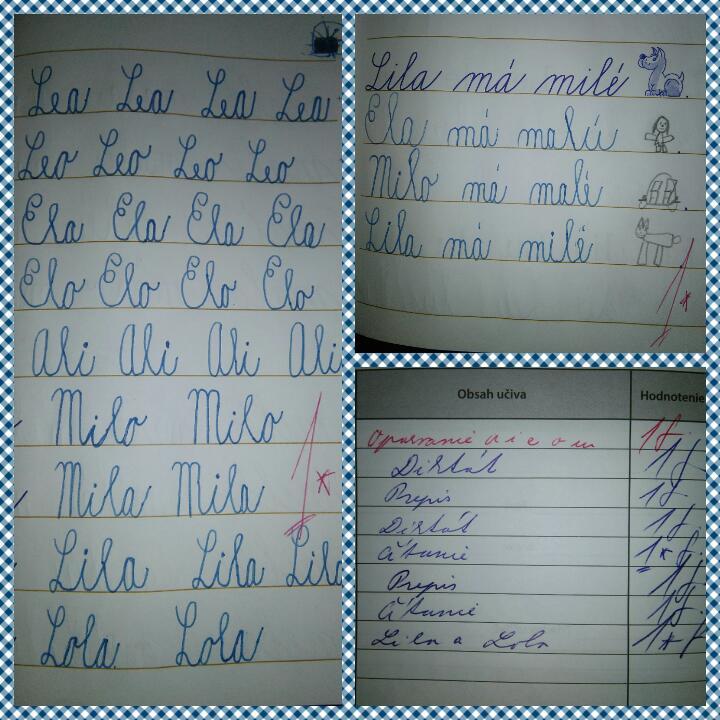 Lea Lea Lea Lea
Leo Leo Leo Leo
Ela Ela Ela Ela
Elo Elo Elo Elo
Ali Ali Ali Ali
Milo Milo
Mila Mila
1*
Lila Lila Lila
Lola Lola
Lila má milé .
Ela má malú .
Milo má malé .
Lila má milé
1*
Obsah učiva Hodnotenie
Opakovanie a i e o u 1
Diktát 1
Prepis 1
Diktát 1
Čítanie 1*
Prepis 1
Čítanie 1
Lila a Lola 1*